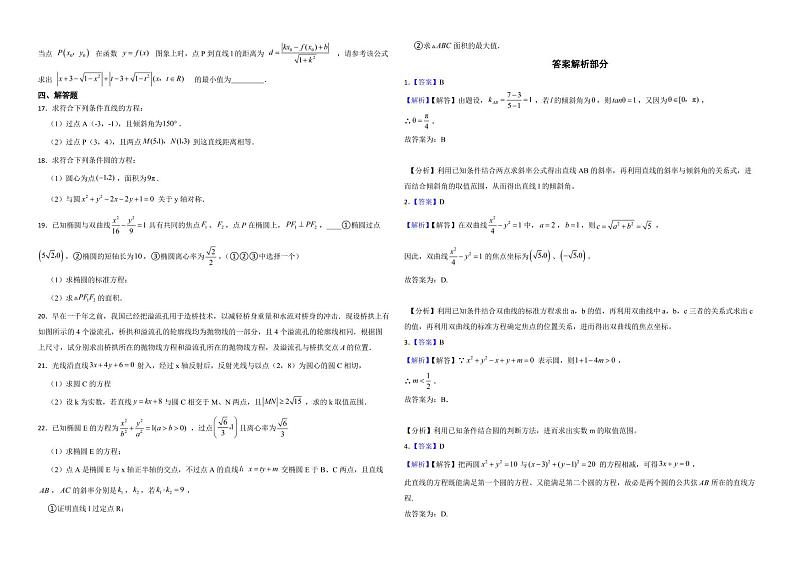 当点 P(x₀, y₀) 在函数 y=f(x) 图象上时，点 P 到直线 l 的距离为 d=|kx₀-f(x₀)+b|/√(1+k²) ，请参考该公式
求出 |x+3-√(1-x²)|+|t-3+√(1-t²)|(x, t∈R) 的最小值为________．
四、解答题
17．求符合下列条件直线的方程：
（1）过点 A（-3，-1），且倾斜角为150°．
（2）过点 P（3，4），且两点M(5,1)，N(1,3) 到这直线距离相等．
18．求符合下列条件圆的方程：
（1）圆心为点(-1,2)，面积为9π．
（2）与圆 x²+y²-2x-2y+1=0 关于 y 轴对称．
19．已知椭圆与双曲线 x²/16-y²/9=1 具有共同的焦点 F₁，F₂，点 P 在椭圆上，PF₁⊥PF₂，____①椭圆过点
(5√2,0)，②椭圆的短轴长为10，③椭圆离心率为 √2/2，（①②③中选择一个）
（1）求椭圆的标准方程；
（2）求△PF₁F₂ 的面积．
20．早在一千年之前，我国已经把溢流孔用于造桥技术，以减轻桥身重量和水流对桥身的冲击．现设桥拱上有
如图所示的 4 个溢流孔，桥拱和溢流孔的轮廓线均为抛物线的一部分，且 4 个溢流孔的轮廓线相同．根据图
上尺寸，试分别求出桥拱所在的抛物线方程和溢流孔所在的抛物线方程，及溢流孔与桥拱交点 A 的位置．
21．光线沿直线 3x+4y+6=0 射入，经过 x 轴反射后，反射光线与以点（2，8）为圆心的圆 C 相切，
（1）求圆 C 的方程
（2）设 k 为实数，若直线 y=kx+8 与圆 C 相交于 M、N 两点，且|MN|≥2√15 ，求的 k 取值范围．
22．已知椭圆 E 的方程为 x²/b²+y²/a²=1(a>b>0) ，过点(√6/3,1)且离心率为 √6/3
（1）求椭圆 E 的方程；
（2）点 A 是椭圆 E 与 x 轴正半轴的交点，不过点 A 的直线l: x=ty+m 交椭圆 E 于 B、C 两点，且直线
AB，AC 的斜率分别是 k₁，k₂，若 k₁·k₂=9 ，
①证明直线 l 过定点 R；
②求△ABC 面积的最大值．
答案解析部分
1．【答案】B
【解析】【解答】由题设，k_AB=(7-3)/(5-1)=1，若 l 的倾斜角为θ，则tanθ=1，又因为θ∈[0，π)，
∴θ=π/4．
故答案为：B
【分析】利用已知条件结合两点求斜率公式得出直线 AB 的斜率，再利用直线的斜率与倾斜角的关系式，进
而结合倾斜角的取值范围，从而得出直线 l 的倾斜角。
2．【答案】D
【解析】【解答】在双曲线 x²/4-y²=1 中，a=2，b=1，则 c=√(a²+b²)=√5 ，
因此，双曲线 x²/4-y²=1 的焦点坐标为(√5,0)、(-√5,0)．
故答案为：D.
【分析】利用已知条件结合双曲线的标准方程求出 a，b 的值，再利用双曲线中 a，b，c 三者的关系式求出 c
的值，再利用双曲线的标准方程确定焦点的位置关系，进而得出双曲线的焦点坐标。
3．【答案】B
【解析】【解答】∵ x²+y²-x+y+m=0 表示圆，则1+1-4m>0 ，
∴m<1/2．
故答案为：B.
【分析】利用已知条件结合圆的判断方法，进而求出实数 m 的取值范围。
4．【答案】D
【解析】【解答】把两圆 x²+y²=10 与(x-3)²+(y-1)²=20 的方程相减，可得3x+y=0 ，
此直线的方程既能满足第一个圆的方程、又能满足第二个圆的方程，故必是两个圆的公共弦 AB 所在的直线方
程.
故答案为：D.